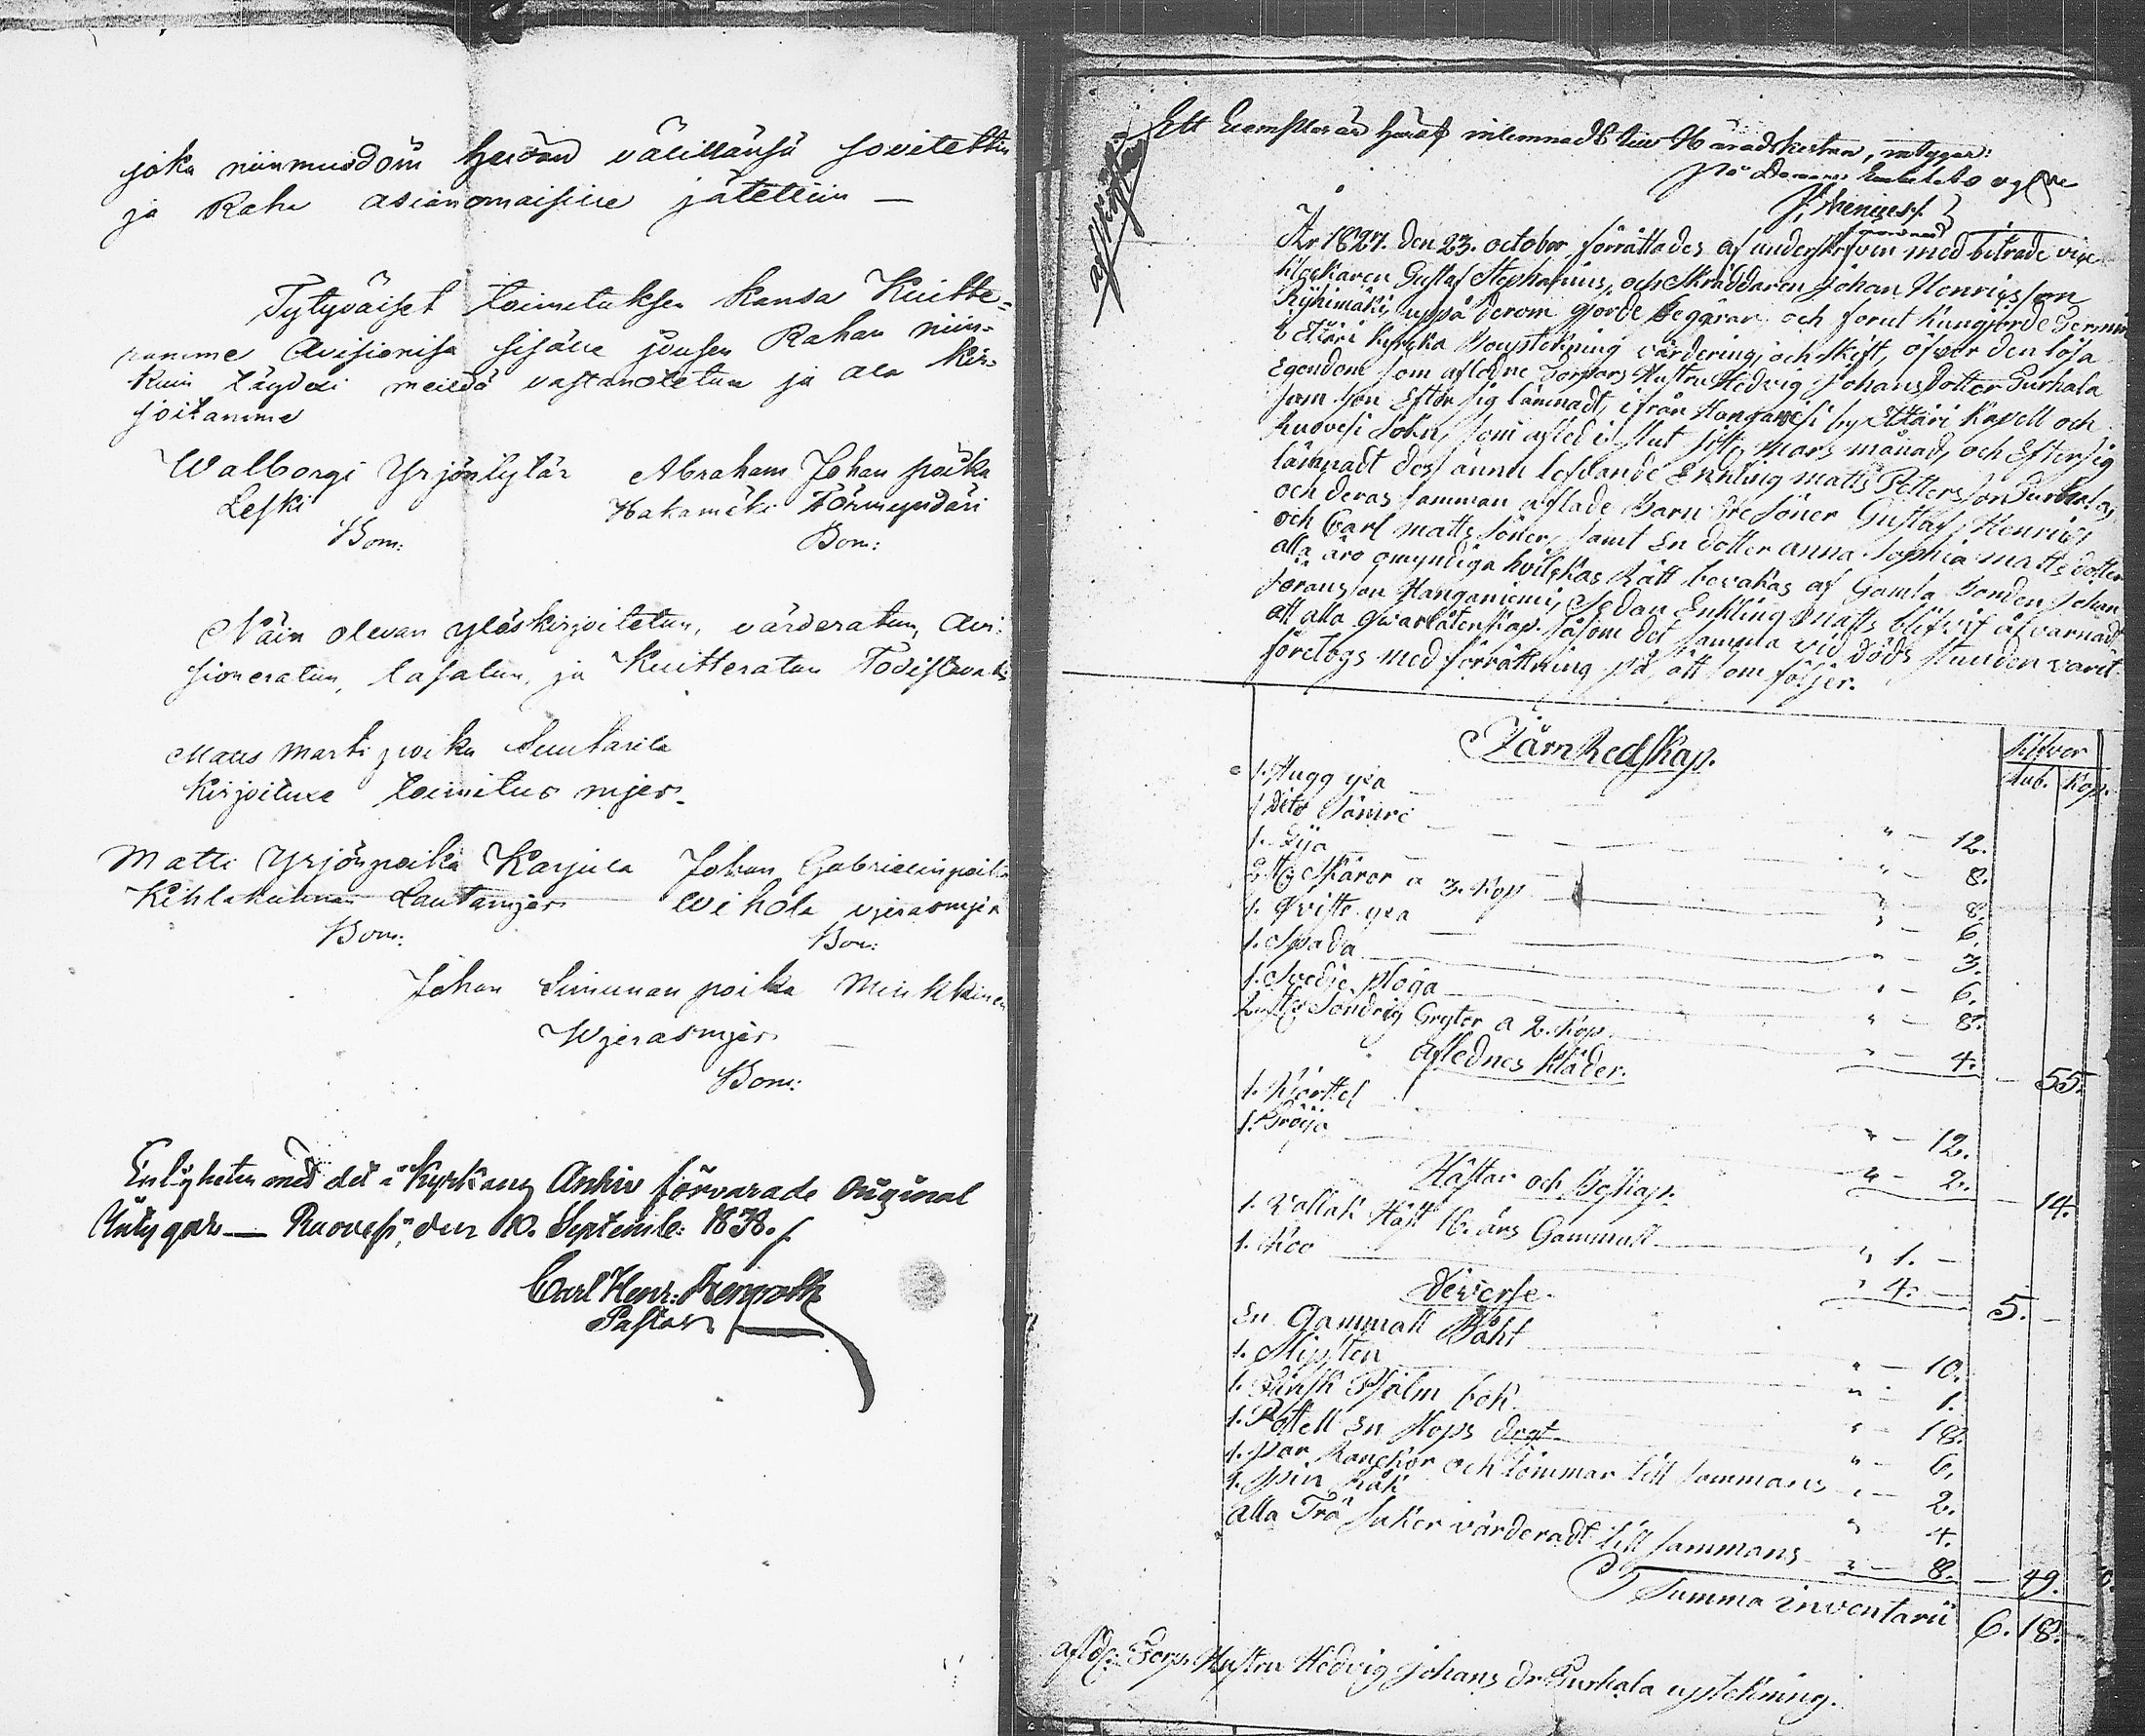 joka niinmuodoin heidän välillänsä sovitettin
ja Raha asianomaisille jätettiin —
Tytyväiset toimituksen kansa Kuitte=
ramme Avisionisa sisälle jouksen Rahan niin=
kuin täydexi meildä vastanotetun ja ala kir=
joitamme
Walborgi Yrjöntytär Abraham Johan poika
Leski Hakamäki Förmyndäri
Bom: Bom:
Näin olevan ylöskirjoitetun, värderatun, Avi=
sioneratun, lasatun, ja Kuitteratun Todistavat
Matts Martinpoika Suutarila
kirjoituxe toimitus mjes.
Matti Yrjönpoika Karjula Johan Gabrielinpoika
Kihlakunnan Lautamjes Wihola vjerasmjes
Bom: Bom:
Johan Simunan poika Minkkinen
Wjerasmjes —
Bom:
Enligheten med det i Kyrkans Arkiv förvarade Original
Intygar — Ruovesi, den 10. Septemb: 1838. /.
Carl Henr: Bergroth
Pastor
Ett Exemplar häraf inlemnadt till Häradskistan, intygar:
På Domare Embetets vägnar
afskrifven
År 1827. den 23. october förrättades af underskrifven med biträde
Klockaren Gustaf Stephanius, och Skräddaren Johan Henricsson
Riihimäki, uppå derom gjorde begäran och forut kungjorde Termin
i Etseri kyrka Boupteckning värdering, och skift, öfver den lösa
Egendom som afledne Torpars Hustru Hedvig Johans dotter Purhala
som hon Efter sig lämnadt, ifrån Hangavesi by Etseri Kapell och
Ruovesi Sokn, som afled i slut sist. Mars månad, och Efter sig
lämnadt des ännu lefvande Enkling Matts Pettersson Purhala,
och deras samman aflade Barn tre söner Gustaf, Henric,
och Carl matts söner, samt En dotter anna Sophia matts dotter
alla äro omyndiga hvilkas Rätt bevakas af Gamla Bonden Johan
Göransson Hanganiemi, Sedan Enkling Matts blifvit åtvarnadt
att alla qvarlåtenskap såsom det samma vid döds stunden varit
företogs med förrättning på sätt som följer.
Järn Redskap. Silfver
Rub. Kop.
1. Hugg yxa " — 12.
1 dito sämre " — 8.
1. Lija " — 8.
2. st. Skäror a 3. Kop " — 6.
1. Qvista yxa " — 3.
1. Spada " — 6.
1. Svedje ploga " — 8.
2. st. Söndrig Grytor a 2. Kop. " — 4. — 55.
Aflednes Kläder.
1. Kjorttel " — 12.
1. Tröija " — 2. — 14.
Hästar och Boskap.
1. Vallak Häst 16. års Gammall " 1. —
1. Koo " 4. — 5. —
Diverse.
En Gammall Båht " — 10.
1. Slipsten " — 1.
1. Finsk Psalm bok " — 18.
1. Bottell En stops drgt " — 6.
1. par Ranckor och tömmar till sammans " — 2.
1. spin Råk " 4.
Alla Trä saker värderadt till sammans " — 8. — 49.
Summa inventarii 6. 18.
afldne Torp. Hustru Hedvig Johans dr Purhala uptekning.